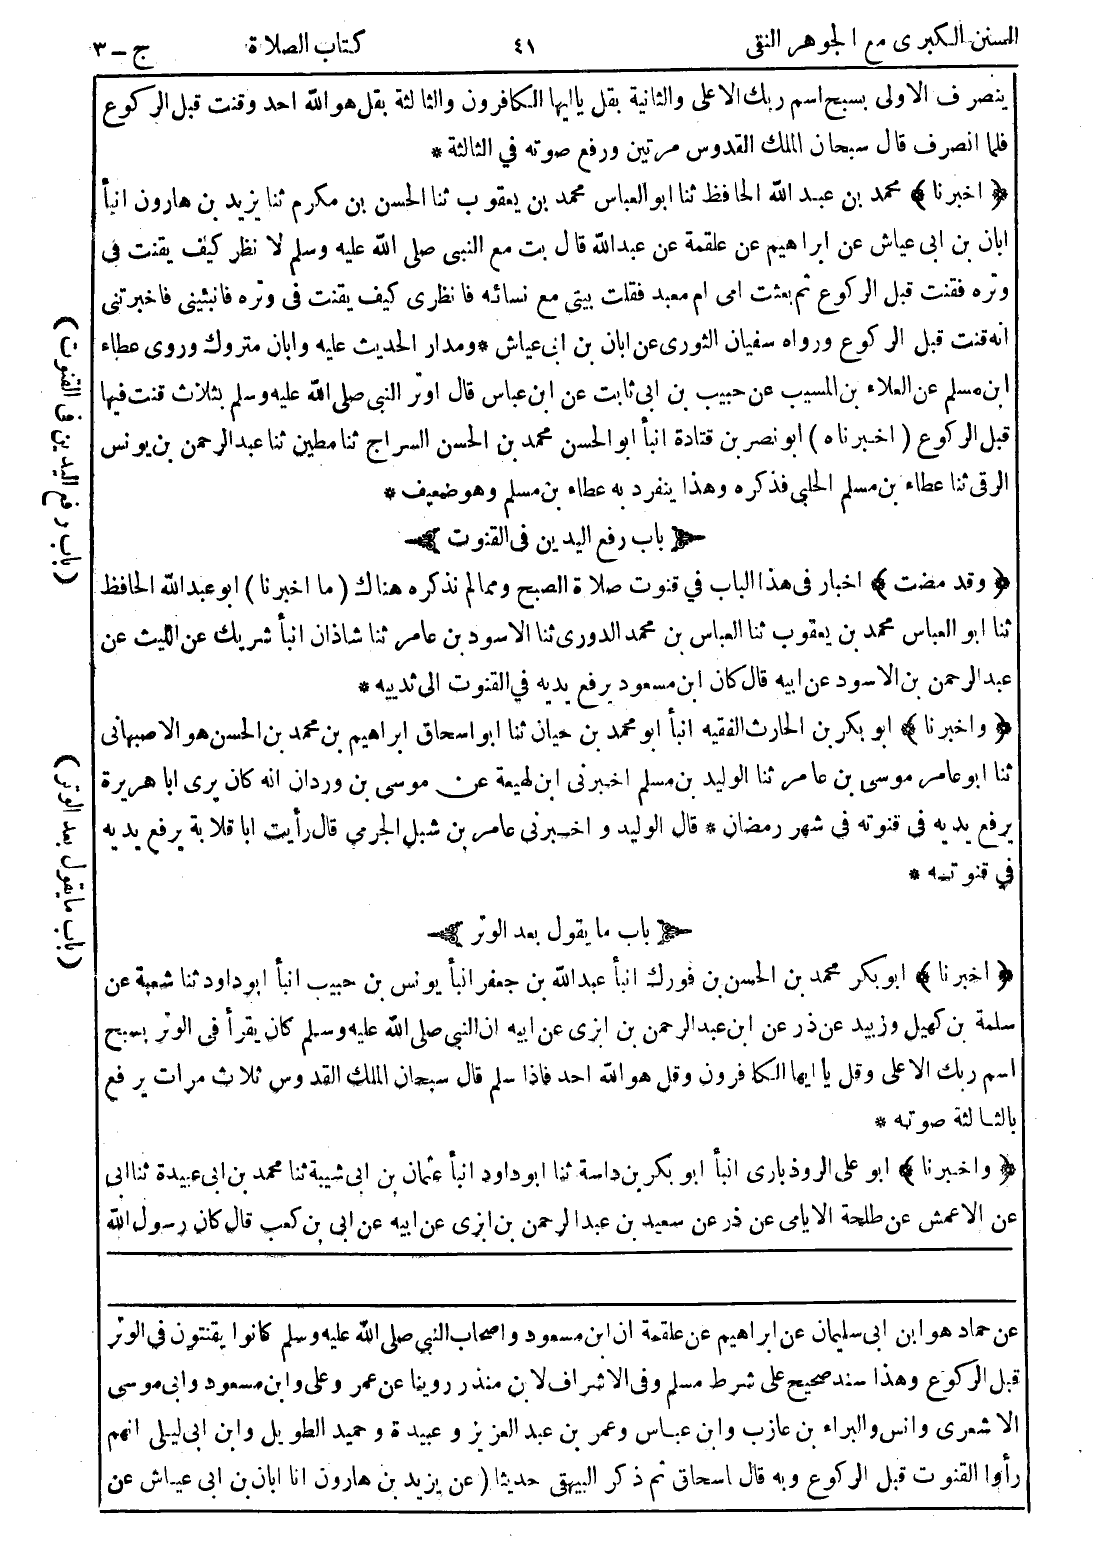 السنن الكبرى مع الجوهر النقى ٤١ كتاب الصلاة ج-٣
ينصرف الاولى بسبح اسم ربك الاعلى والثانية بقل ياايها الكافرون والثالثة بقل هو الله احد وقنت قبل الركوع
فلما انصرف قال سبحان الملك القدوس مرتين ورفع صوته في الثالثة *
﴿ اخبرنا ﴾ محمد بن عبد الله الحافظ ثنا ابو العباس محمد بن يعقوب ثنا الحسن بن مكرم ثنا يزيد بن هارون انبأ
ابان بن ابى عياش عن ابراهيم عن علقمة عن عبدالله قال بت مع النبى صلى الله عليه وسلم لا نظر كيف يقنت فى
وتره فقنت قبل الركوع ثم بعثت امى ام معبد فقلت بيتى مع نسائه فانظرى كيف يقنت فى وتره فانبثينى فاخبرتنى
انه قنت قبل الركوع ورواه سفيان الثورى عن ابان بن ابى عياش * ومدار الحديث عليه وابان متروك وروى عطاء
ابن مسلم عن العلاء بن المسيب عن حبيب بن ابى ثابت عن ابن عباس قال اوتر النبى صلى الله عليه وسلم بثلاث قنت فيها
قبل الركوع ( اخبرناه ) ابو نصر بن قتادة انبأ ابو الحسن محمد بن الحسن السراج ثنا مطين ثنا عبدالرحمن بن يونس
الرقى ثنا عطاء بن مسلم الحلبى فذكره وهذا ينفرد به عطاء بن مسلم وهو ضعيف *
باب رفع اليدين فى القنوت
﴿ وقد مضت ﴾ اخبار فى هذا الباب في قنوت صلاة الصبح ومما لم نذكره هناك ( ما اخبرنا ) ابو عبدالله الحافظ
ثنا ابو العباس محمد بن يعقوب ثنا العباس بن محمد الدورى ثنا الاسود بن عامر ثنا شاذان انبأ شريك عن الليث عن
عبدالرحمن بن الاسود عن ابيه قال كان ابن مسعود يرفع يديه في القنوت الى ثدييه *
﴿ واخبرنا ﴾ ابو بكر بن الحارث الفقيه انبأ ابو محمد بن حيان ثنا ابو اسحاق ابراهيم بن محمد بن الحسن هو الاصبهانى
ثنا ابو عامر موسى بن عامر ثنا الوليد بن مسلم اخبرنى ابن لهيعة عن موسى بن وردان انه كان يرى ابا هريرة
يرفع يديه فى قنوته فى شهر رمضان * قال الوليد واخبرنى عامر بن شبل الجرمي قال رأيت ابا قلابة يرفع يديه
في قنوته *
باب ما يقول بعد الوتر
﴿ اخبرنا ﴾ ابو بكر محمد بن الحسن بن فورك انبأ عبدالله بن جعفر انبأ يونس بن حبيب انبأ ابو داود ثنا شعبة عن
سلمة بن كهيل وزبيد عن ذر عن ابن عبدالرحمن بن ابزى عن ابيه ان النبى صلى الله عليه وسلم كان يقرأ فى الوتر بسبح
اسم ربك الاعلى وقل يا ايها الكافرون وقل هو الله احد فاذا سلم قال سبحان الملك القدوس ثلاث مرات يرفع
بالثالثة صوته *
﴿ واخبرنا ﴾ ابو على الروذبارى انبأ ابو بكر بن داسة ثنا ابو داود انبأ عثمان بن ابى شيبة ثنا محمد بن ابى عبيدة ثنا ابى
عن الاعمش عن طلحة الايامى عن ذر عن سعيد بن عبدالرحمن بن ابزى عن ابيه عن ابى بن كعب قال كان رسول الله
( باب رفع اليدين فى القنوت )
( باب ما يقول بعد الوتر )
عن حماد هو ابن ابى سليمان عن ابراهيم عن علقمة ان ابن مسعود واصحاب النبي صلى الله عليه وسلم كانوا يقنتون في الوتر
قبل الركوع وهذا سند صحيح على شرط مسلم وفى الاشراف لابن منذر روينا عن عمر وعلى وابن مسعود وابى موسى
الاشعرى وانس والبراء بن عازب وابن عباس وعمر بن عبد العزيز وعبيدة وحميد الطويل وابن ابى ليلى انهم
رأوا القنوت قبل الركوع وبه قال اسحاق ثم ذكر البيهقى حديثا ( عن يزيد بن هارون انا ابان بن ابى عياش عن